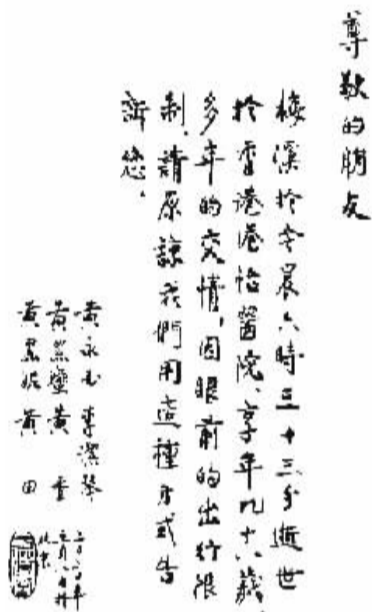 尊敬的朋友
梅溪於今晨六時三十三分逝世
於香港港怡醫院,享年九十八歲
多年的交情,因眼前的出行限
制,請原諒我們用這種方式告
訴您。
黃永玉 李潔琴
黃黑蠻 黃 香
黃黑妮 黃 田
二〇二〇年
五月八日於
北京